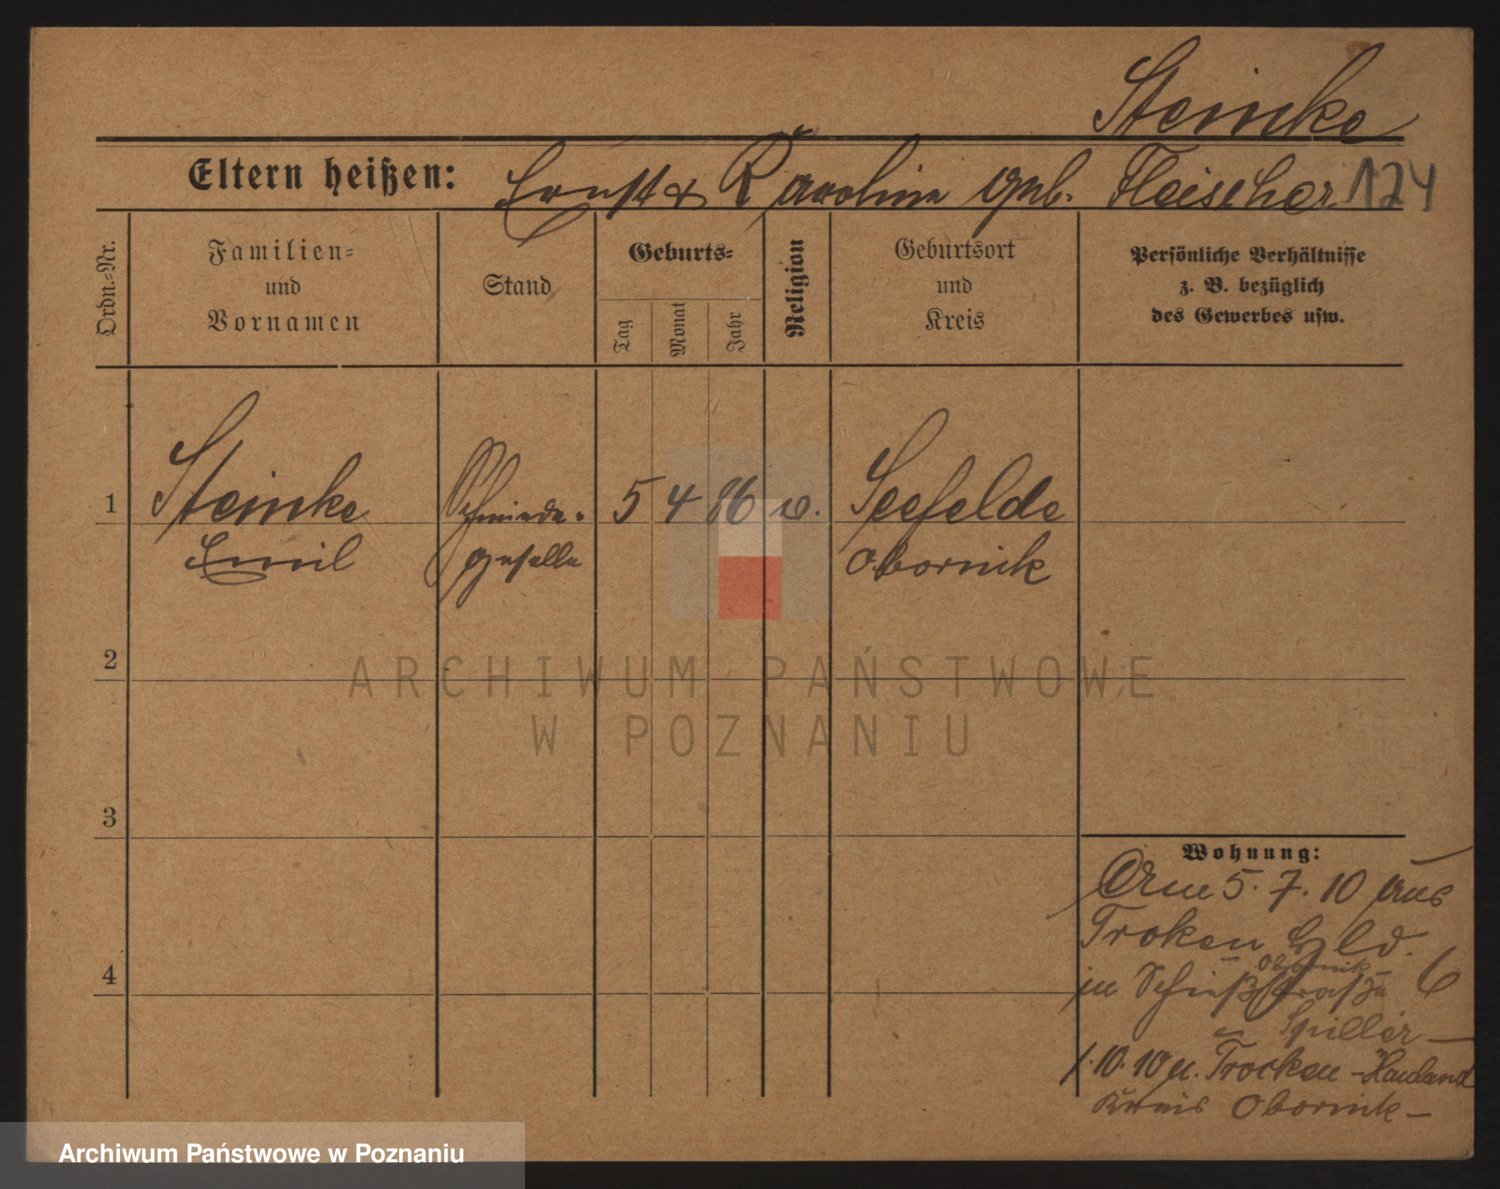 Steinke
Eltern heißen: Ernst & Karoline geb. Fleischer 124
Ordn.-Nr.
Familien-
und
Vornamen
Stand
Geburts-
Tag
Monat
Jahr
Religion
Geburtsort
und
Kreis
Persönliche Verhältnisse
z. B. bezüglich
des Gewerbes usw.
1 Steinke Schmiede- 5 4 86 Seefelde
Emil geselle Obornik
2
3
4
Wohnung:
5.7.10 aus
Troken Hld.
Obornik
in Schießstraße 6
Spiller
1.10.10 n. Trocken-Hauland
Kreis Obornik
ARCHIWUM PAŃSTWOWE
W POZNANIU
Archiwum Państwowe w Poznaniu